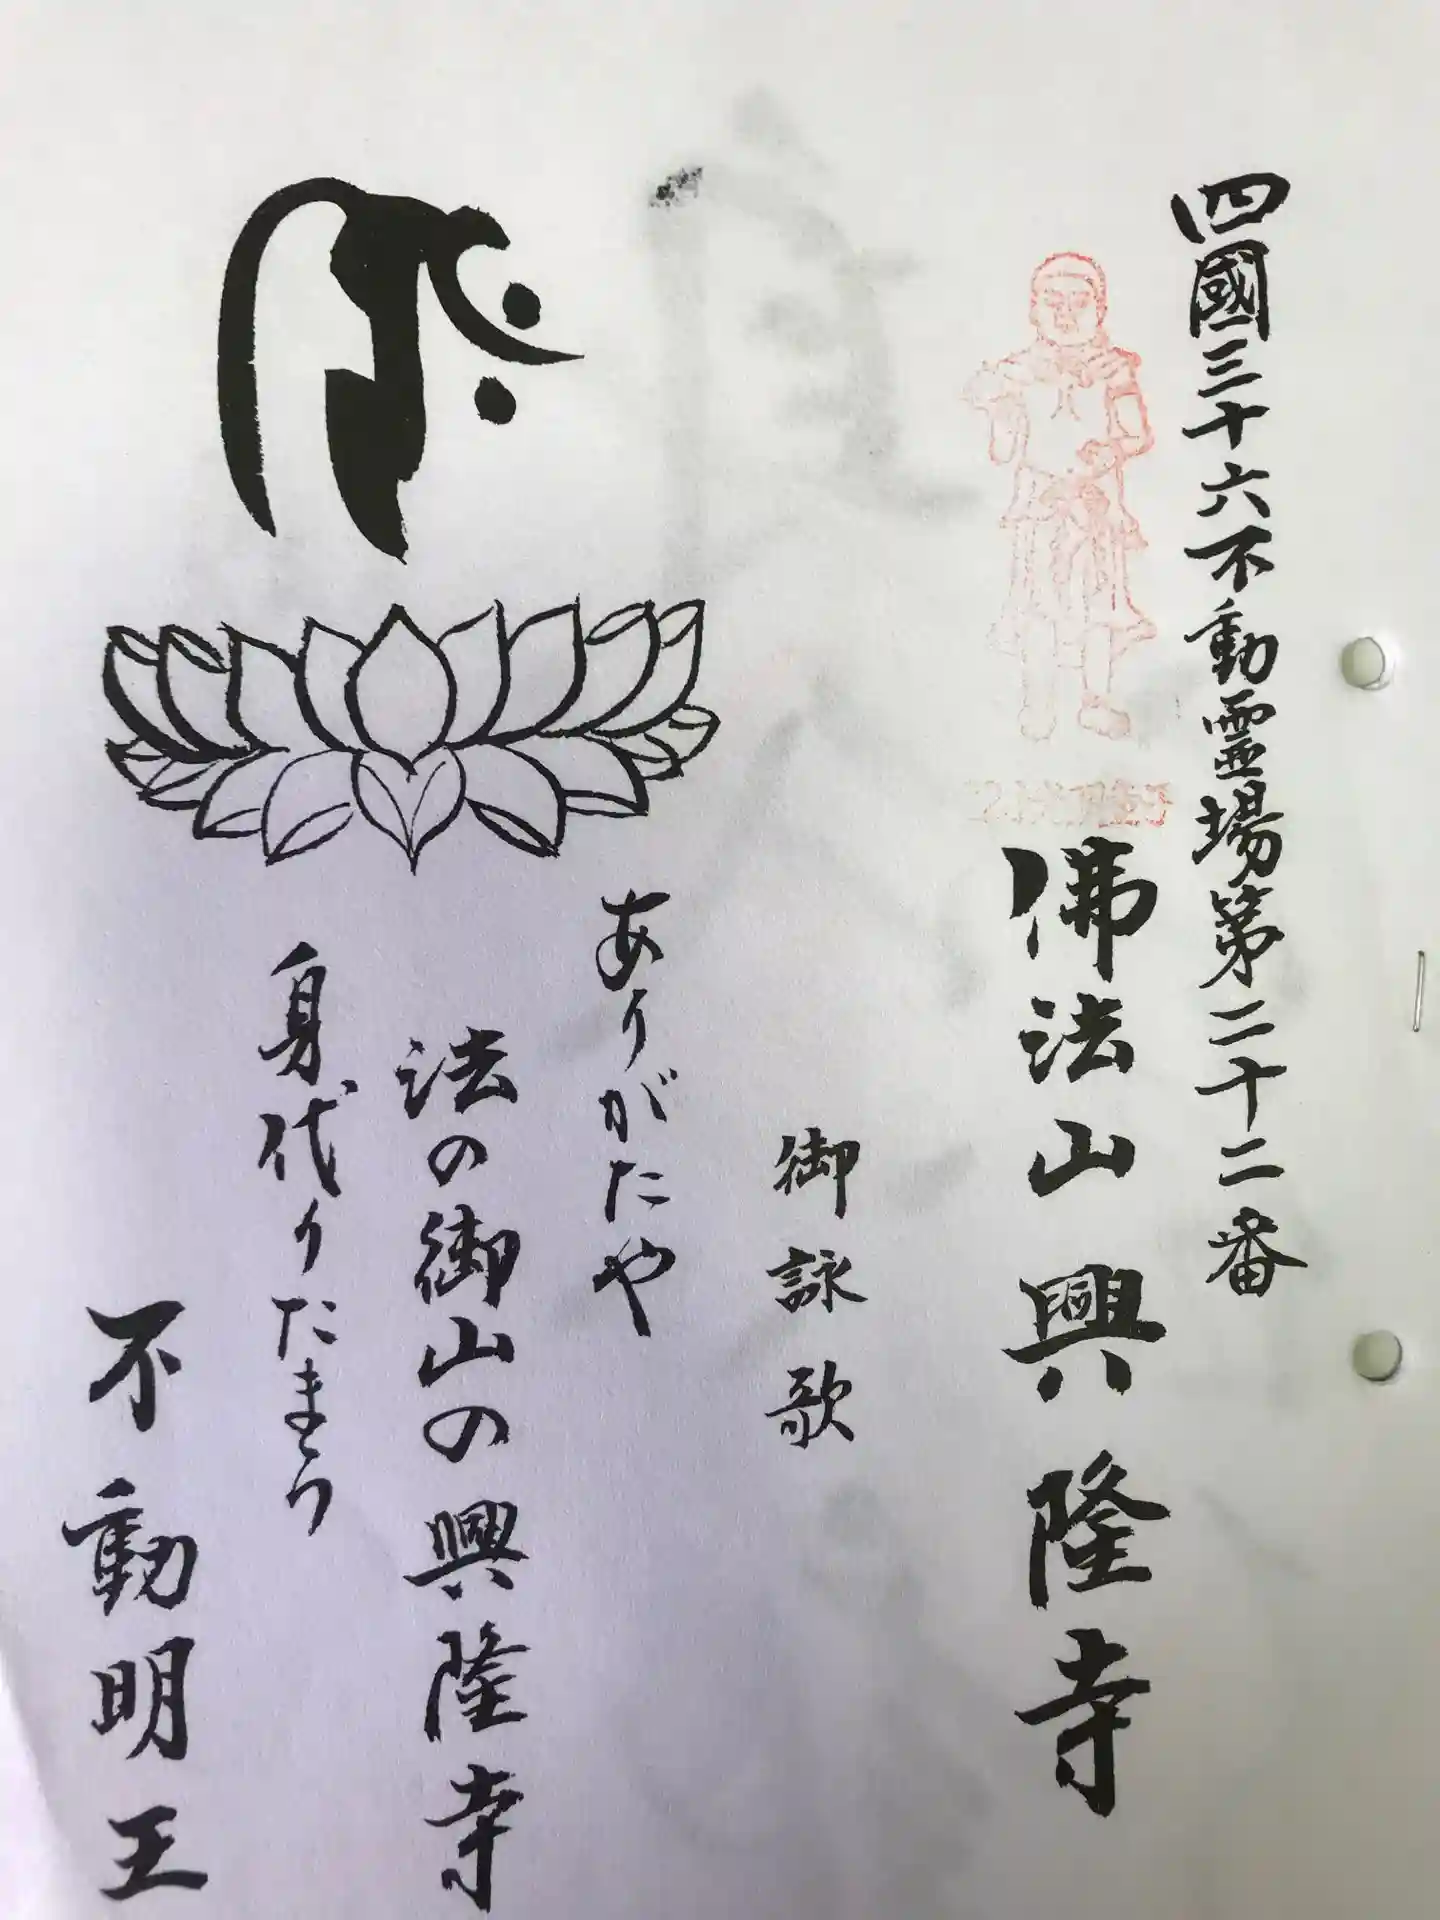 四國三十六不動霊場第二十二番
佛法山興隆寺
御詠歌
ありがたや
法の御山の興隆寺
身代りたまう
不動明王